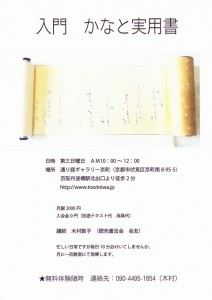 入門　かなと実用書
日時　第三日曜日　ＡＭ10：00～12：00
場所　通り庭ギャラリー京町（京都市伏見区京町南8-95-5）
京阪丹波橋駅北出口より徒歩２分
http://www.tooriniwa.jp
月謝 2000 円
入会金０円（別途テキスト代　用具代）
講師　木村敦子　（読売書法会　会友）
忙しい日常ですが毎日 10 分お習いしませんか。
月に一回教室にて指導します。
★無料体験随時　連絡先：090-4495-1854（木村）